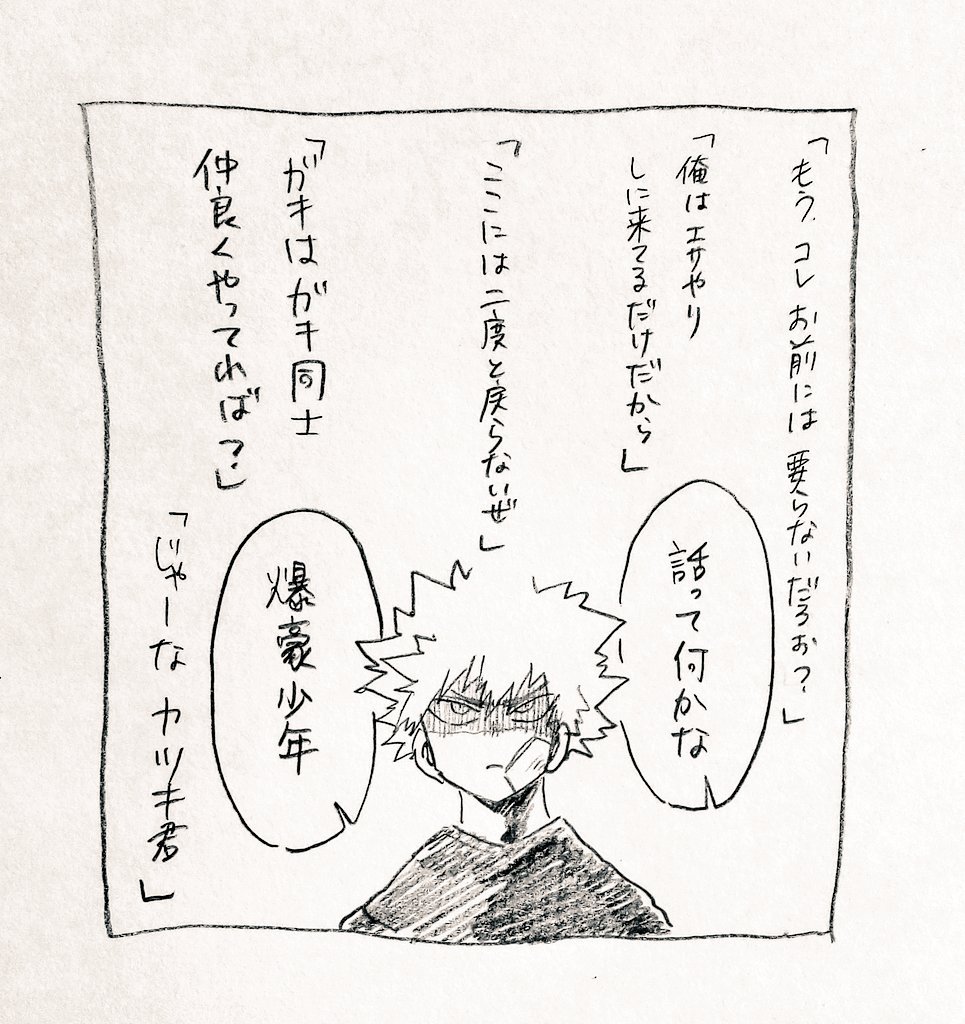 「もう、コレ お前には 要らないだろぉ？」
「俺は エサやり
しに来てるだけだから」
話って何かな
「ここには二度と戻らないぜ」
「ガキはガキ同士
仲良くやってれば？」
爆豪少年
「じゃーな カツキ君」